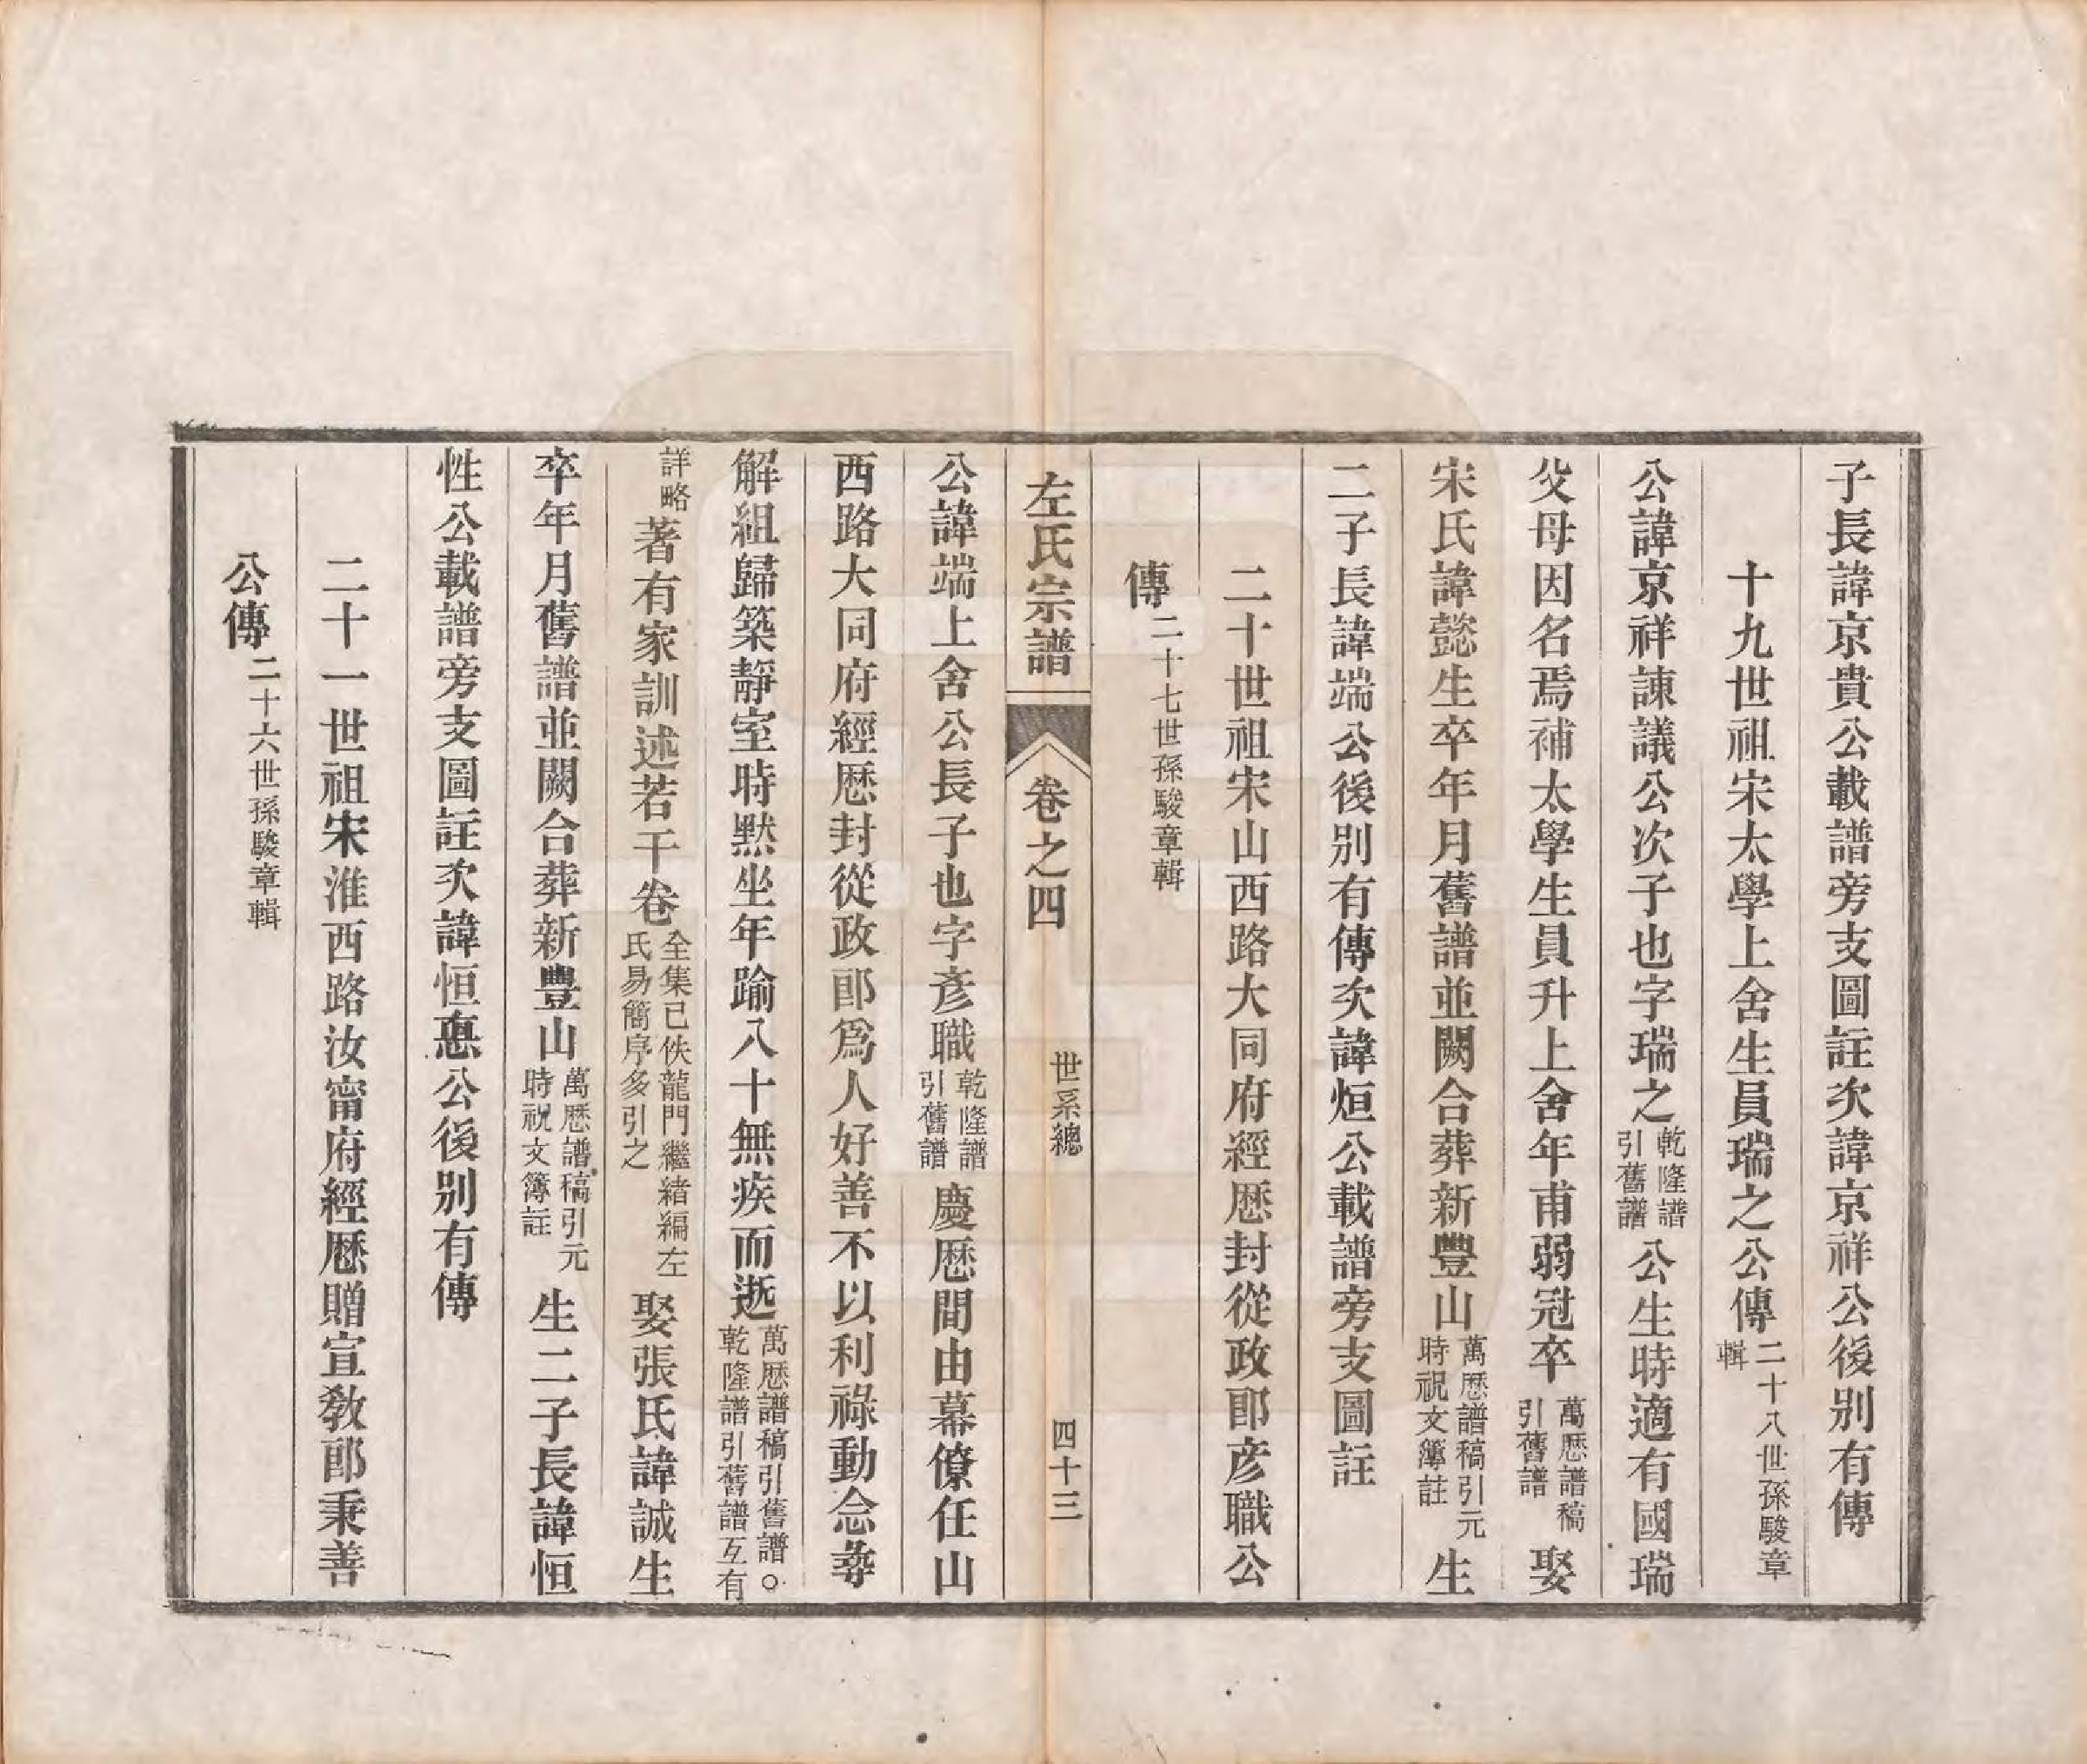 子長諱京貴公載譜旁支圖註次諱京祥公後別有傳
十九世祖宋太學上舍生員瑞之公傳二十八世孫駿章輯
公諱京祥諫議公次子也字瑞之乾隆譜引舊譜公生時適有國瑞
父母因名焉補太學生員升上舍年甫弱冠卒萬歷譜稿引舊譜娶
宋氏諱懿生卒年月舊譜並闕合葬新豐山萬歷譜稿引元時祝文簿註生
二子長諱端公後別有傳次諱烜公載譜旁支圖註
二十世祖宋山西路大同府經歷封從政郎彥職公
傳二十七世孫駿章輯
左氏宗譜 卷之四 世系總 四十三
公諱端上舍公長子也字彥職乾隆譜引舊譜慶歷間由幕僚任山
西路大同府經歷封從政郎為人好善不以利祿動念尋
解組歸築靜室時默坐年踰八十無疾而逝萬歷譜稿引舊譜○乾隆譜引舊譜互有
詳略著有家訓述若干卷全集已佚龍門繼緒編左氏易簡序多引之娶張氏諱誠生
卒年月舊譜並闕合葬新豐山萬歷譜稿引元時祝文簿註生二子長諱恒
性公載譜旁支圖註次諱恒悳公後別有傳
二十一世祖宋淮西路汝甯府經歷贈宣教郎秉善
公傳二十六世孫駿章輯